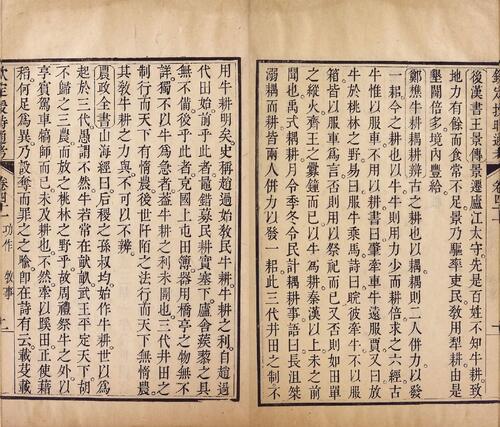 後漢書王景傳景遷廬江太守先是百姓不知牛耕致
地力有餘而食常不足景乃驅率吏民敎用犁耕由是
墾闢倍多境内豐給
鄭樵牛耕耦耕辯古之耕也以耦耦則二人併力以發
一耜今之耕也以牛牛則用力少而耕倍求之六經古
牛惟以服車不用以耕書曰肇牽車牛遠服賈又曰放
牛於桃林之野易曰服牛乘馬詩曰睆彼牽牛不以服
箱皆以服車爲言否則用以祭祀而已又否則如田單
之縱火齊王之釁鐘而已以牛爲耕秦漢以上未之前
聞也禹式耦耕月令季冬令民計耦耕事語曰長沮桀
溺耦而耕皆兩人併力以發一耜此三代井田之制不
用牛耕明矣史稱趙過始敎民牛耕牛耕之利自趙過
代田始前乎此者鼂錯募民耕實塞下廬舍蒺藜之具
無不備後乎此者克國上屯田簿器用橋亭之物無不
詳獨不以牛爲急者益牛耕之利未開也三代井田之
制行而天下有惰農後世阡陌之法行而天下無惰農
其敎牛耕之力與不可以不辨
農政全書山海經曰后稷之孫叔均始作牛耕世以爲
起於三代愚謂不然牛若常在畎畝武王平定天下胡
不歸之三農而放之桃林之野乎故周禮祭牛之外以
享賓駕車犒師而已未及耕也不然牽以蹊田正使藉
稻何足爲異乃設奪而罪之之喩即在詩有云載芟載
欽定授時通考
卷四十一
功作
敎事
二